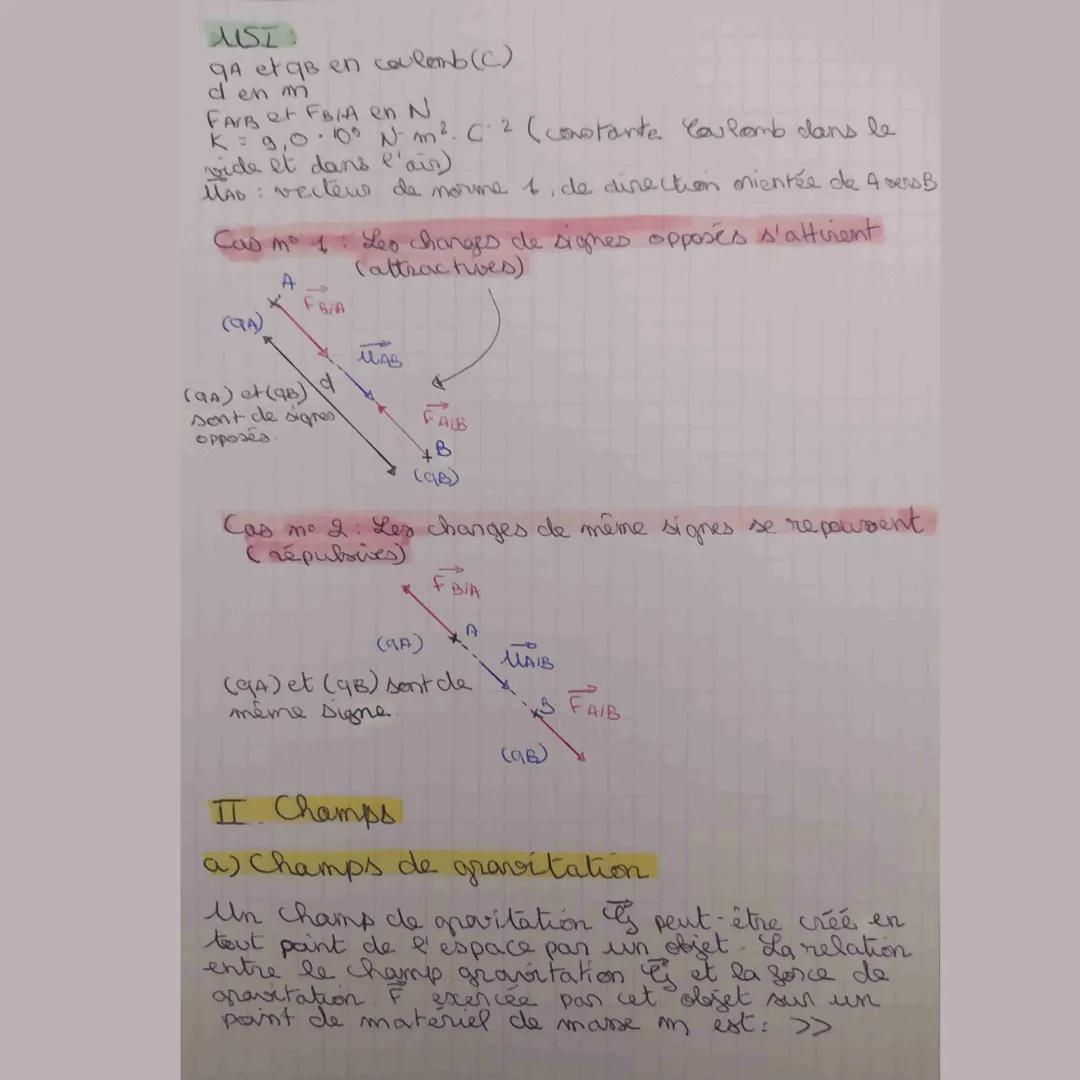 USI :
qA et qB en coulomb (C)
d en m
FA/B et FB/A en N
K = 9,0 · 10⁹ N · m² · C⁻² (constante Coulomb dans le
vide et dans l'air)
uAB : vecteur de norme 1, de direction orientée de A vers B
Cas nº 1 : Les charges de signes opposés s'attirent
(attractives)
A
FB/A
(qA)
uAB
d
(qA) et (qB)
sont de signes
opposés.
FA/B
B
(qB)
Cas nº 2 : Les charges de même signes se repoussent
(répulsives)
FB/A
A
(qA)
uA/B
(qA) et (qB) sont de
même signe.
B
FA/B
(qB)
II Champs
a) Champs de gravitation
Un champ de gravitation G peut-être créé en
tout point de l'espace par un objet. La relation
entre le champ gravitation G et la force de
gravitation F exercée par cet objet sur un
point de matériel de masse m est : >>